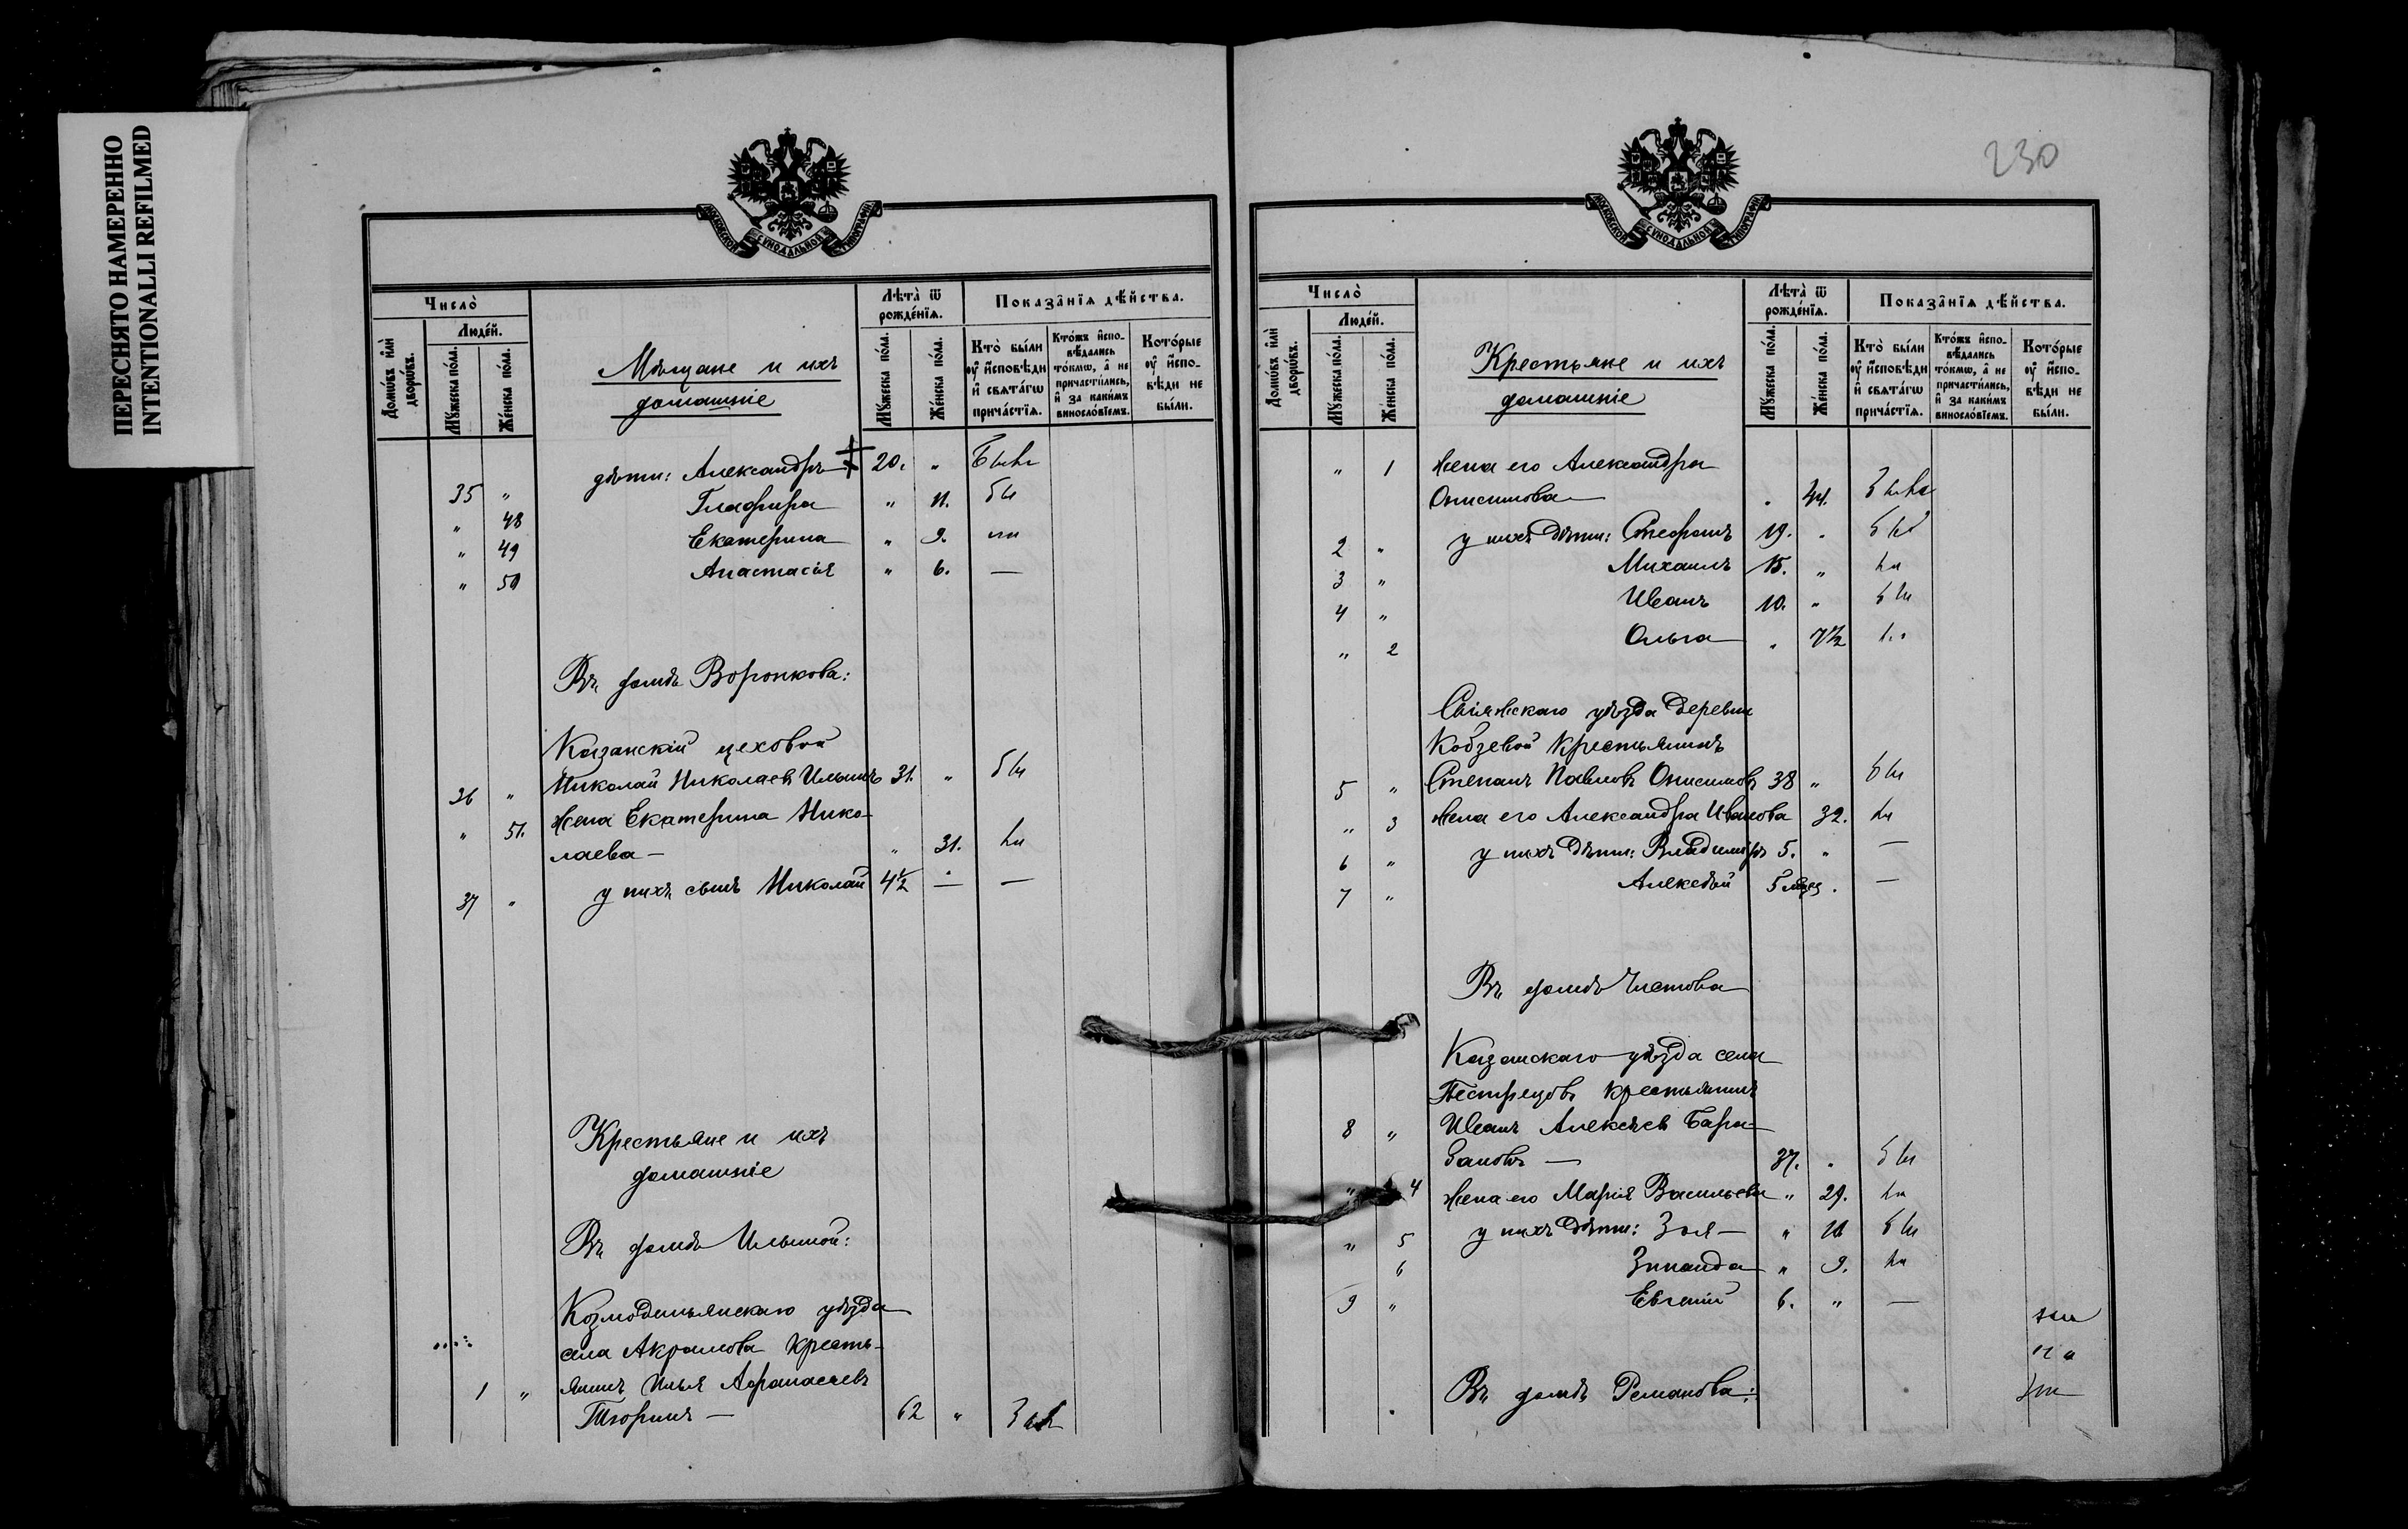 ПЕРЕСНЯТО НАМЕРЕННО
INTENTIONALLI REFILMED
МОСКОВСКОЙ СѴНОДАЛЬНОЙ ТИПОГРАФІИ
Число̀
Домѡ́въ и҆лѝ дворѡ́въ.
Люде́й.
Мꙋ́жеска по́ла.
Же́нска по́ла.
Мѣщане и ихъ
домашніе
Лѣта̀ ѿ рожде́нїѧ.
Мꙋ́жеска по́ла.
Же́нска по́ла.
Показа̑нїѧ дѣ́йства.
Кто̀ бы́ли оу҆ и҆сповѣ́ди и҆ свѧта́гѡ прича́стїѧ.
Кто́жъ и҆спо-вѣ́дались то́кмѡ, а҆ не причасти́лись, и҆ за каки́мъ винословїемъ.
Кото́рые оу҆ и҆спо-вѣ́ди не бы́ли.
35 " дѣти: Александръ 20. "
" 48 Глафира " 11.
" 49 Екатерина " 9.
" 50 Анастасія " 6. —
Въ домѣ Воронкова:
Казанскій цеховой
36 " Николай Николаевъ Ильинъ 31. "
" 51. Жена Екатерина Нико-
лаева — " 31.
37 " у нихъ сынъ Николай 4½ — —
Крестьяне и ихъ
домашніе
Въ домѣ Ильиной:
Козмодемьянскаго уѣзда
села Акрамова кресть-
1 " янинъ Илья Афанасьевъ
Тюринъ — 62 "
230
МОСКОВСКОЙ СѴНОДАЛЬНОЙ ТИПОГРАФІИ
Число̀
Домѡ́въ и҆лѝ дворѡ́въ.
Люде́й.
Мꙋ́жеска по́ла.
Же́нска по́ла.
Крестьяне и ихъ
домашніе
Лѣта̀ ѿ рожде́нїѧ.
Мꙋ́жеска по́ла.
Же́нска по́ла.
Показа̑нїѧ дѣ́йства.
Кто̀ бы́ли оу҆ и҆сповѣ́ди и҆ свѧта́гѡ прича́стїѧ.
Кто́жъ и҆спо-вѣ́дались то́кмѡ, а҆ не причасти́лись, и҆ за каки́мъ винословїемъ.
Кото́рые оу҆ и҆спо-вѣ́ди не бы́ли.
" 1 Жена его Александра
Онисимова — " 44.
2 " у нихъ дѣти: Стефанъ 19. "
3 " Михаилъ 15. "
4 " Иванъ 10. "
" 2 Ольга " 7½
Свіяжскаго уѣзда деревни
Кобзевой крестьянинъ
5 " Степанъ Павловъ Онисимовъ 38 "
" 3 Жена его Александра Иванова 32.
6 " у нихъ дѣти: Владиміръ 5. " —
7 " Алексѣй 5 мѣс. —
Въ домѣ Чистова
Казанскаго уѣзда села
Пестрецовъ крестьянинъ
8 " Иванъ Алексѣевъ Бара-
бановъ — 37. "
" 4 Жена его Марія Васильева " 29.
" 5 у нихъ дѣти: Зоя — "
6 Зинаида " 9.
9 " Евгеній 6. " —
Въ домѣ Романова: